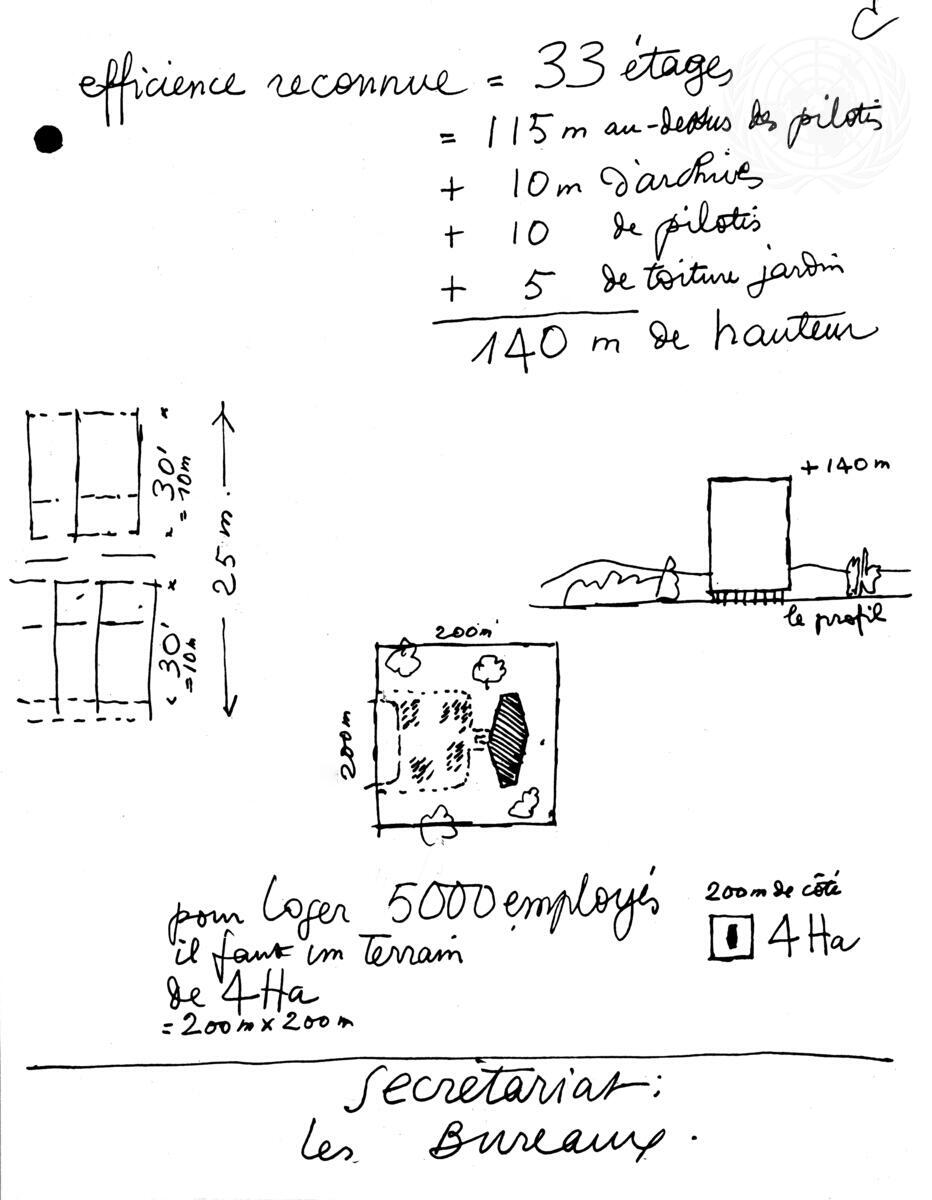 C
efficience reconnue = 33 étages
= 115 m au-dessus des pilotis
+ 10 m d'archives
+ 10 de pilotis
+ 5 de toiture jardin
140 m de hauteur
30'
= 10m
25 m.
30'
= 10m
+ 140 m
le profil
200m
200m
pour loger 5000 employés
il faut un terrain
de 4 Ha
= 200m x 200m
200m de côté
4 Ha
Secrétariat:
les Bureaux.